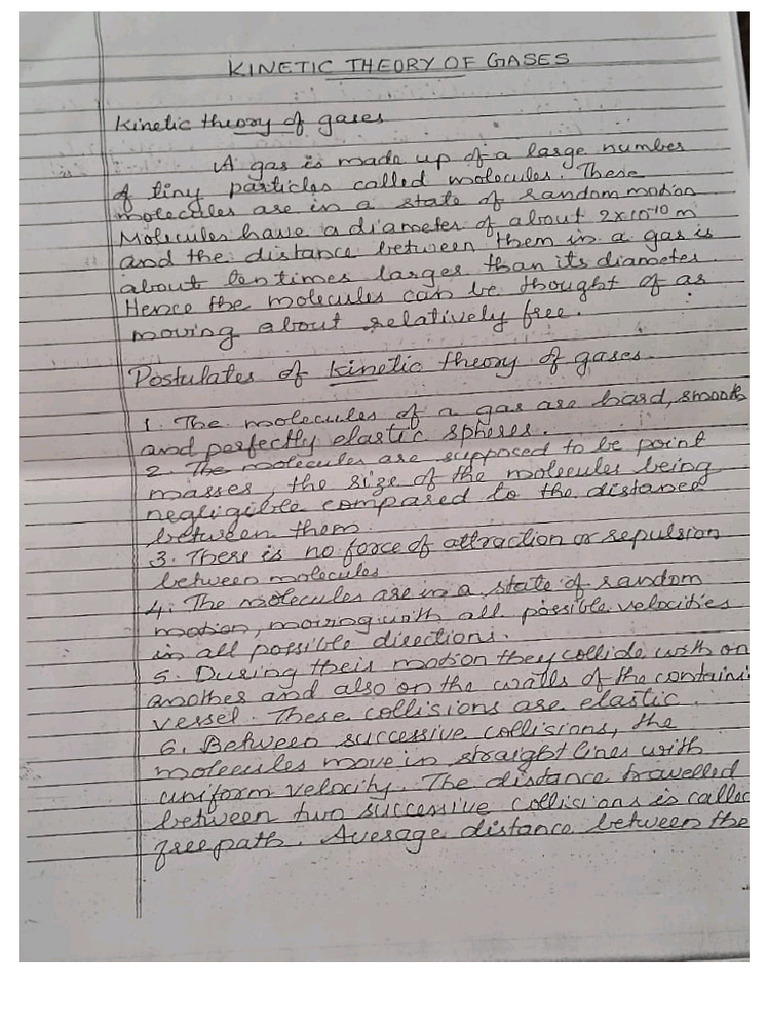 KINETIC THEORY OF GASES
Kinetic theory of gases
A gas is made up of a large number
of tiny particles called molecules. These
molecules are in a state of random motion
Molecules have a diameter of about 2×10-10 m
and the distance between them in a gas is
about ten times larger than its diameter.
Hence the molecules can be thought of as
moving about relatively free.
Postulates of kinetic theory of gases.
1. The molecules of a gas are hard, smooth
and perfectly elastic spheres.
2. The molecules are supposed to be point
masses, the size of the molecules being
negligible compared to the distance
between them.
3. There is no force of attraction or repulsion
between molecules
4. The molecules are in a state of random
motion, moving with all possible velocities
in all possible directions.
5. During their motion they collide with on
another and also on the walls of the containi
vessel. These collisions are elastic.
6. Between successive collisions, the
molecules move in straight lines with
uniform velocity. The distance travelled
between two successive collisions is called
free path. Average distance between the